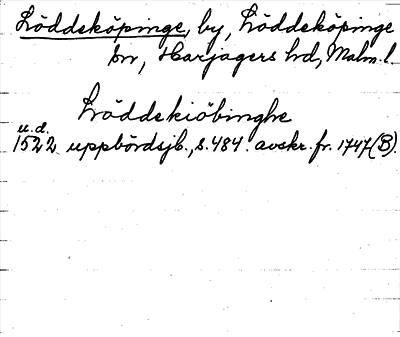 Löddeköpinge, by, Löddeköpinge
sn, Harjagers hd, Malm. l.
Löddekiöbinghe
u.d.
1522 uppbördsjb., s. 484. avskr. fr. 1747 (B).